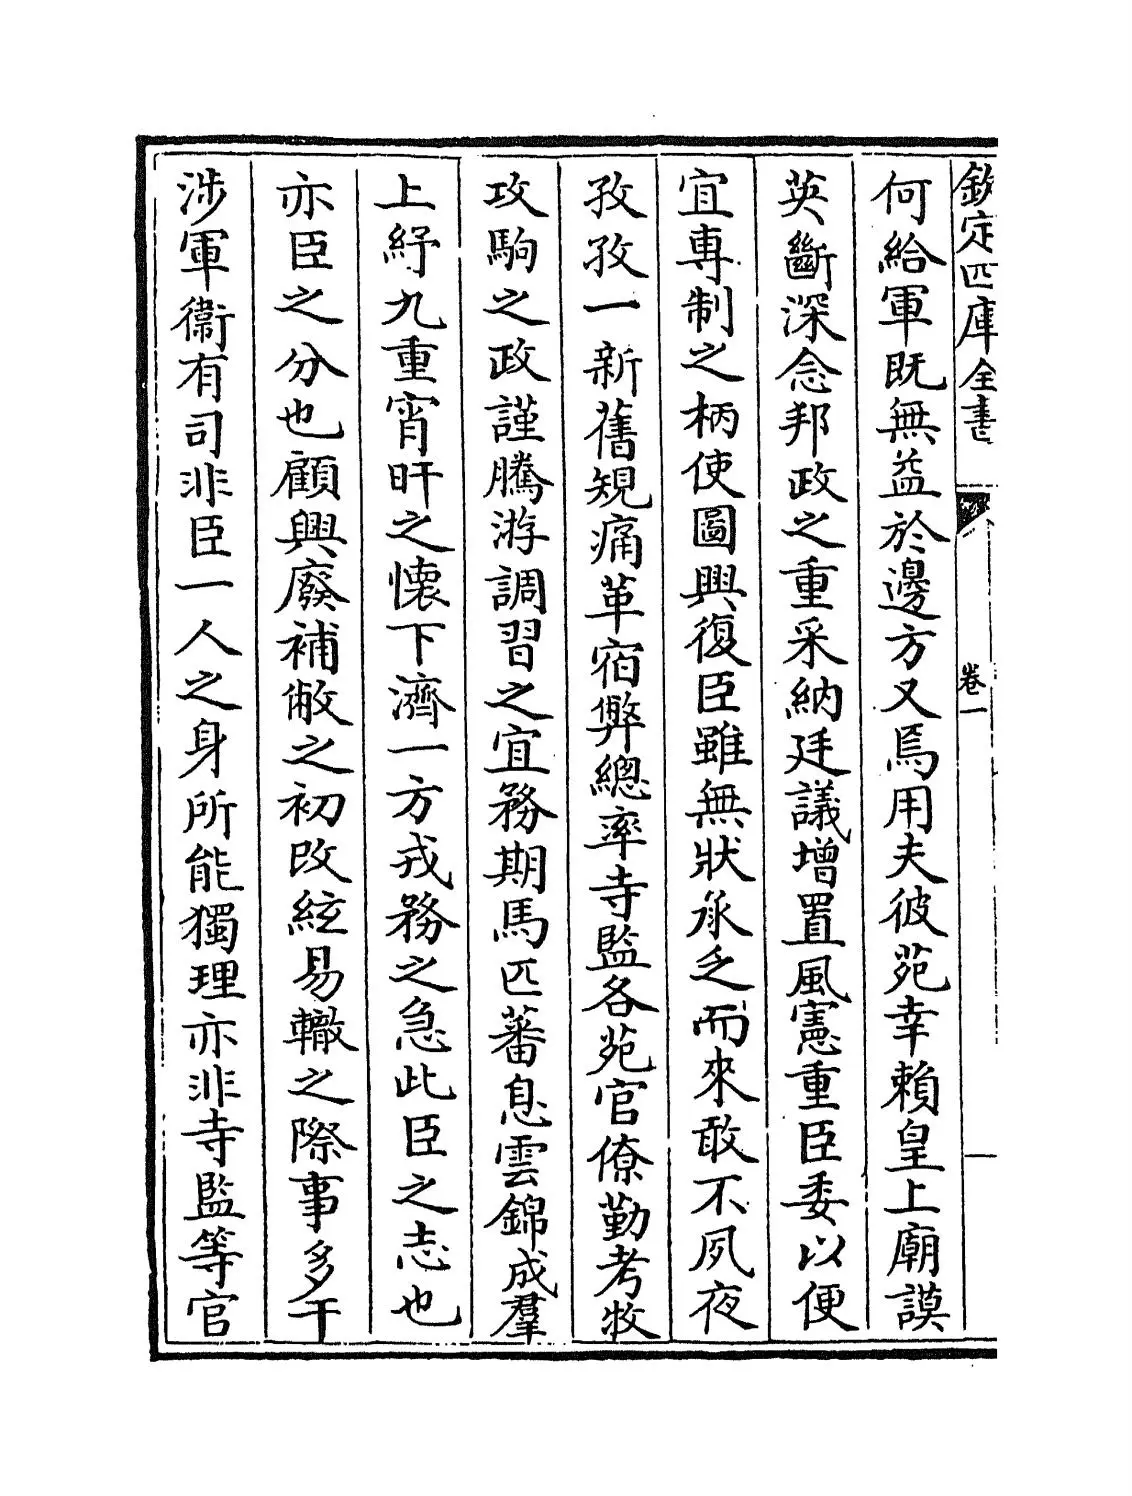 欽定四庫全書
卷一
何給軍既無益於邊方又焉用夫彼苑幸賴皇上廟謨
英斷深念邦政之重采納廷議增置風憲重臣委以便
宜專制之柄使圖興復臣雖無狀承乏而來敢不夙夜
孜孜一新舊規痛革宿弊總率寺監各苑官僚勤考牧
攻駒之政謹騰游調習之宜務期馬匹蕃息雲錦成羣
上紓九重宵旰之懷下濟一方戎務之急此臣之志也
亦臣之分也顧興廢補敝之初改絃易轍之際事多干
涉軍衞有司非臣一人之身所能獨理亦非寺監等官